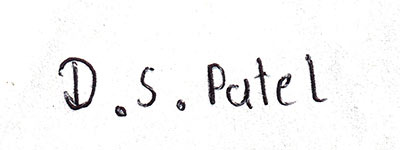 D. S. Patel